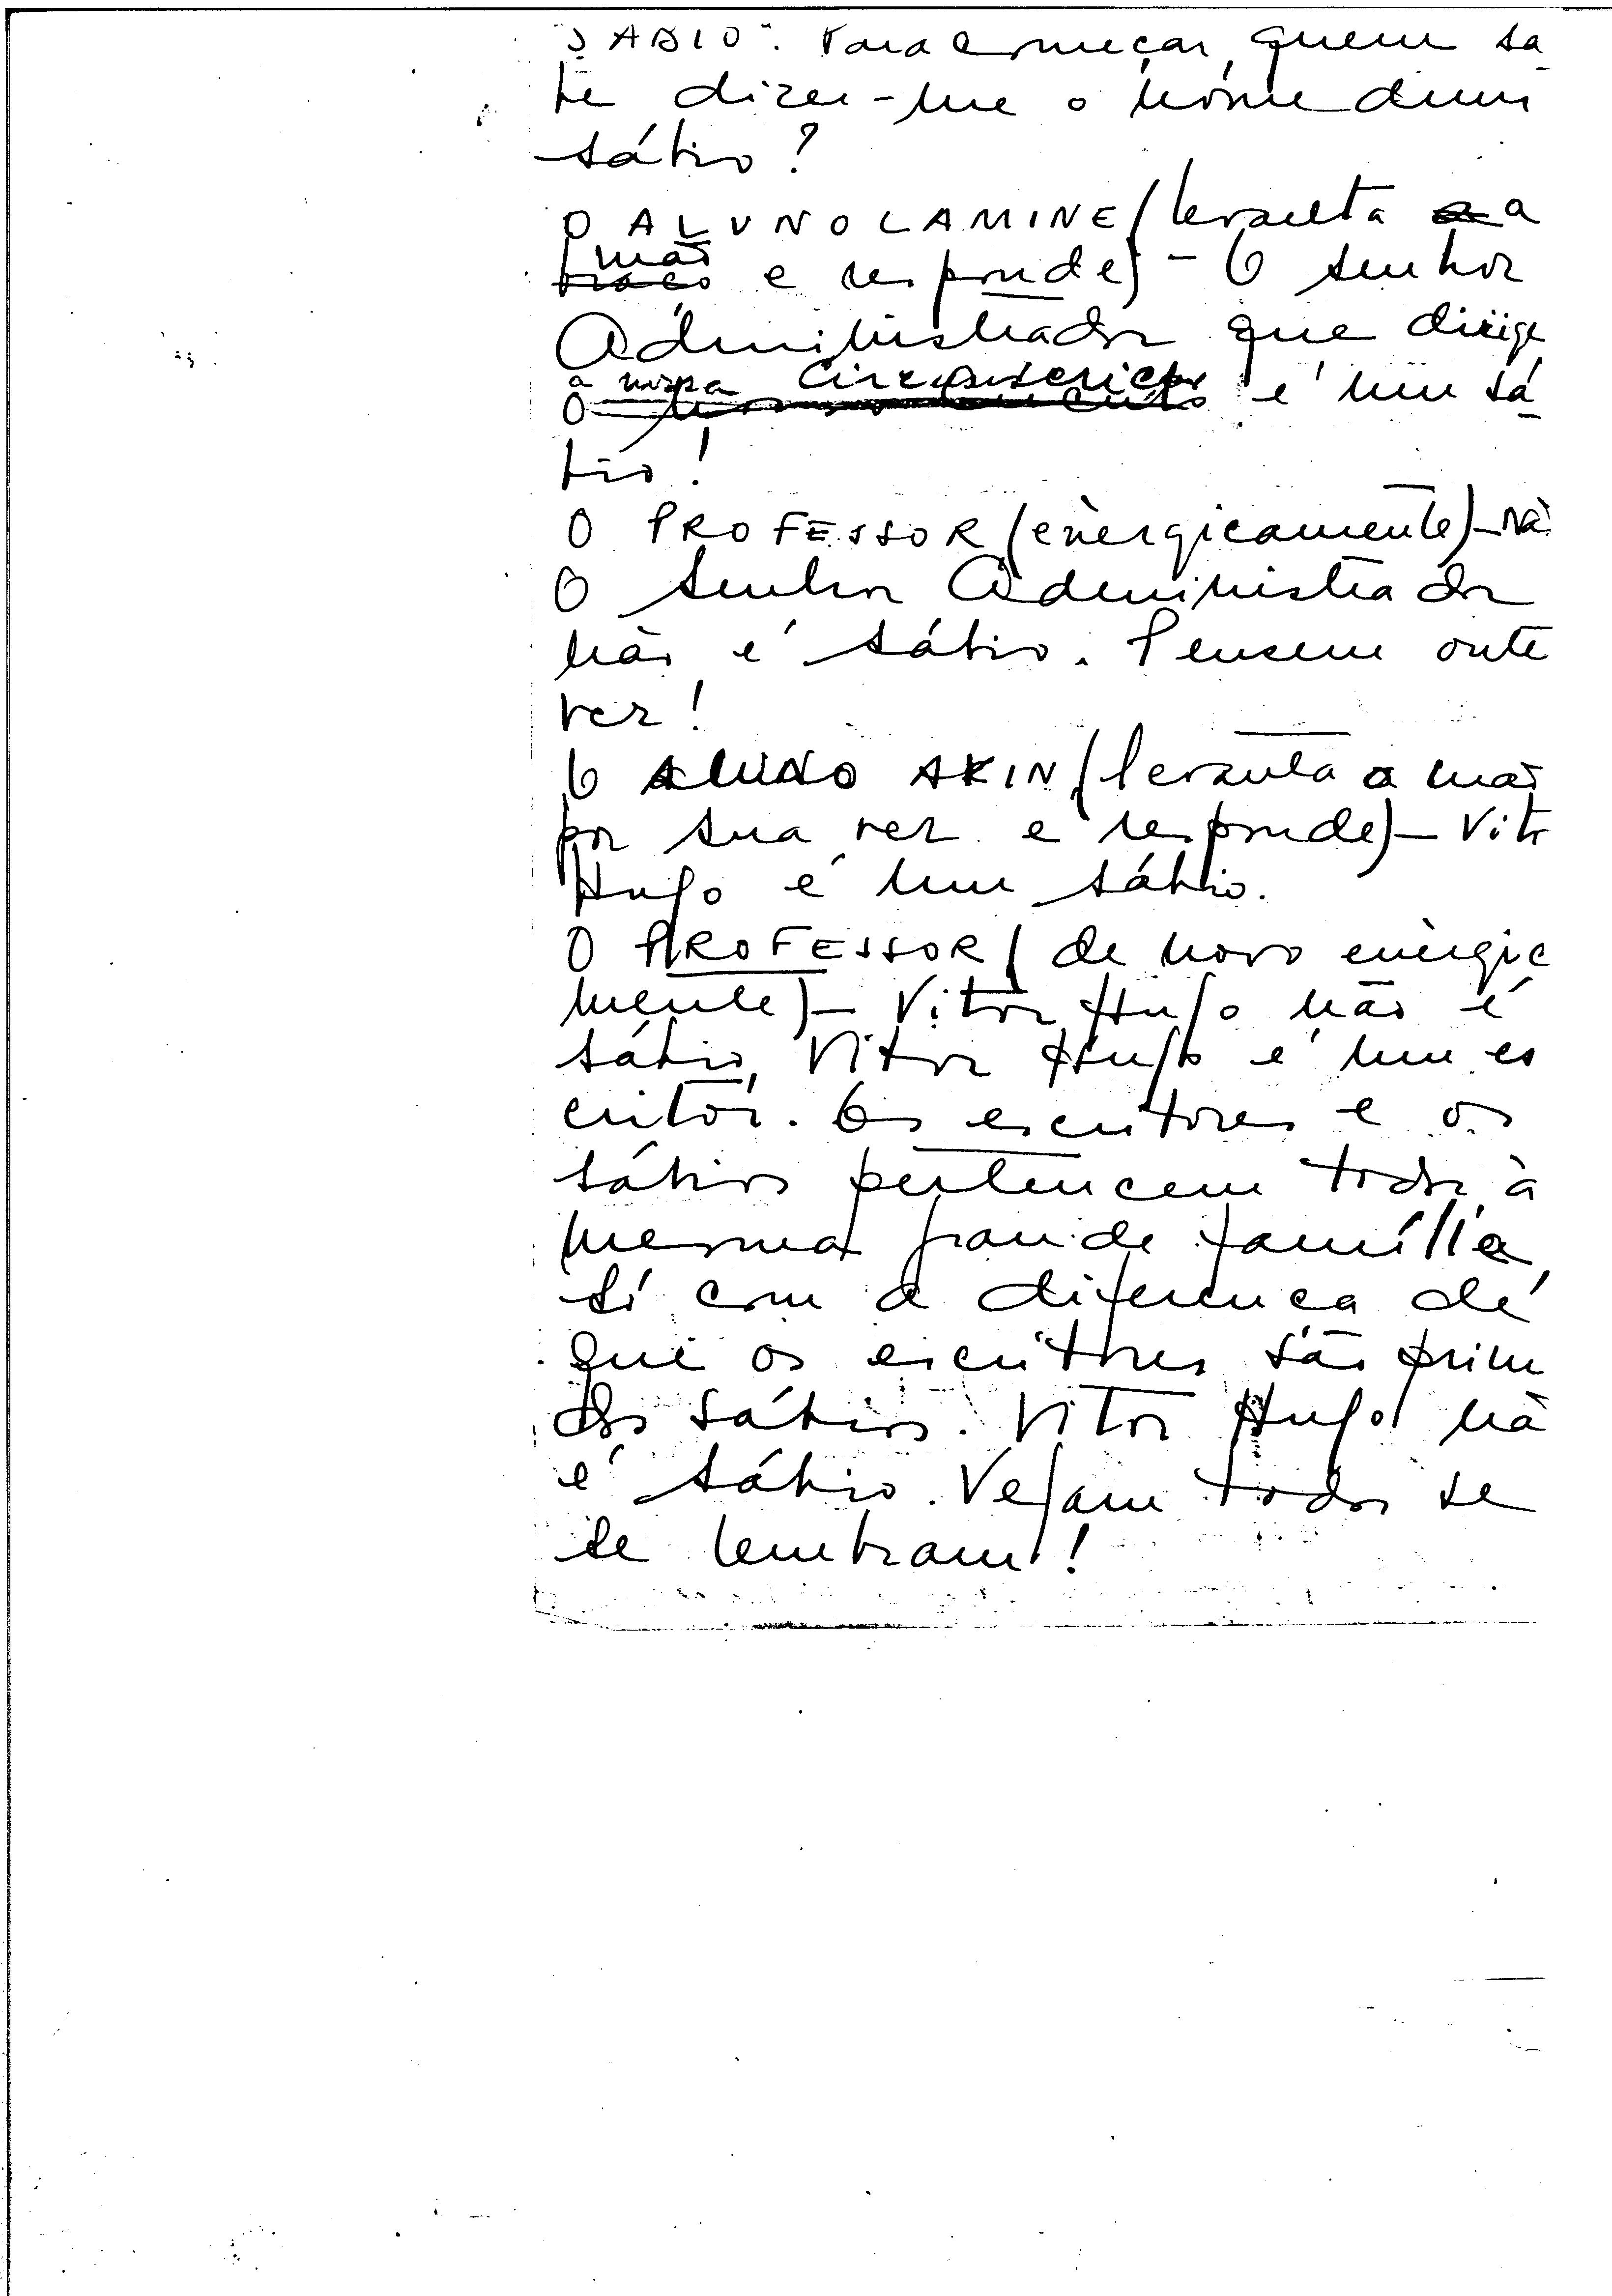 "SABIO". Para começar, quem sa
be dizer-me o nome dum
sábio?
O ALUNO LAMINE (levanta a
mão
braço e responde) - O senhor
Administrador que dirige
a nossa Circunscrição
O é um sá
bio!
O PROFESSOR (enèrgicamente) - Nã
O senhor Administrador
não é sábio. Pensem outr
vez!
O ALUNO AKIN (levanta a mão
por sua vez e responde) - Vitr
Hugo é um sábio.
O PROFESSOR (de novo enèrgic
mente) - Vitor Hugo não é
sábio, Vitor Hugo é um es
critor. Os escritores e os
sábios pertencem todos à
mesma grande família,
só com a diferença de
que os escritores são prim
dos sábios. Vitor Hugo nã
é sábio. Vejam todos se
se lembram!